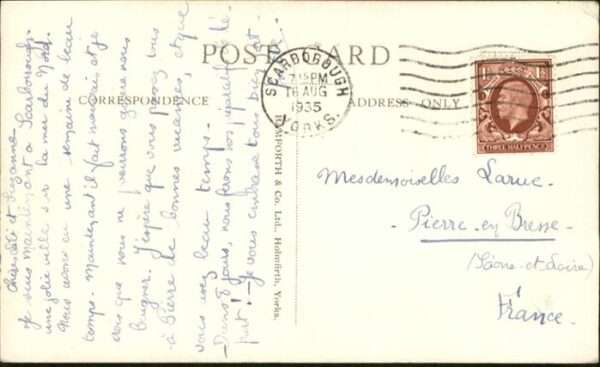 POST CARD
CORRESPONDENCE
ADDRESS ONLY
SCARBOROUGH
7 15 PM
16 AUG
1935
YORKS.
THREE HALFPENCE
BAMFORTH & Co. Ltd., Holmfirth, Yorks.
Mesdemoiselles Laruc
- Pierre-en-Bresse -
(Saône-et-Loire)
France.
et Suzanne
Je suis maintenant à Scarborough
une jolie ville sur la mer du Nord.
Nous avons eu une semaine de beau
temps. Maintenant il fait mauvais et je
crois que nous ne pourrons guère nous
baigner. J'espère que vous passez vous
à Pierre de bonnes vacances, et que
vous avez beau temps.
Dans 8 jours, nous ferons nos préparatifs de dé-
part! - Je vous embrasse tous bien fort